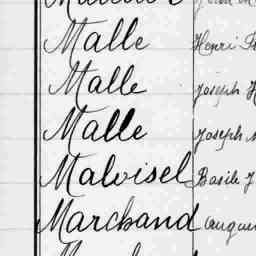 Malle Henri
Malle Joseph
Malle Joseph
Maloisel Basile J
Marchand